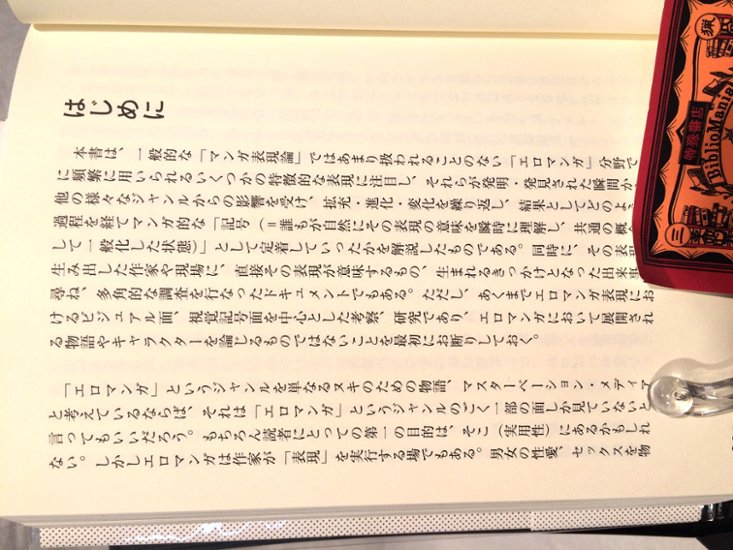 はじめに
本書は、一般的な「マンガ表現論」ではあまり扱われることのない「エロマンガ」分野で
に頻繁に用いられるいくつかの特徴的な表現に注目し、それらが発明・発見された瞬間か
他の様々なジャンルからの影響を受け、拡充・進化・変化を繰り返し、結果としてどのよ
過程を経てマンガ的な「記号（＝誰もが自然にその表現の意味を瞬時に理解し、共通の概
して一般化した状態）」として定着していったかを解説したものである。同時に、その表
生み出した作家や現場に、直接その表現が意味するもの、生まれるきっかけとなった出来事
尋ね、多角的な調査を行なったドキュメントでもある。ただし、あくまでエロマンガ表現にお
けるビジュアル面、視覚記号面を中心とした考察、研究であり、エロマンガにおいて展開され
る物語やキャラクターを論じるものではないことを最初にお断りしておく。
「エロマンガ」というジャンルを単なるヌキのための物語、マスターベーション・メディア
と考えているならば、それは「エロマンガ」というジャンルのごく一部の面しか見ていないと
言ってもいいだろう。もちろん読者にとっての第一の目的は、そこ（実用性）にあるかもしれ
ない。しかしエロマンガは作家が「表現」を実行する場でもある。男女の性愛、セックスを物
猟
書店
BiblioMania
三